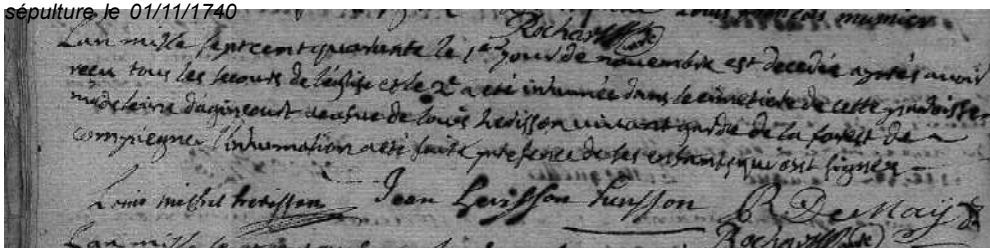 sépulture le 01/11/1740
Rochard
Lan mille sept cent quarante le 1er jour de novembre est decedée apres avoir
recu tous les secours de léglise et le 2e a eté inhumée dans le cimetiere de cette paroisse
magdeleine dagincourt veufve de louis herisson vivant garde de la forest de
compiegne l'inhumation a eté faite presence de ses enfants qui ont signez
Louis michel herisson Jean herisson
Lan mille
Rochard